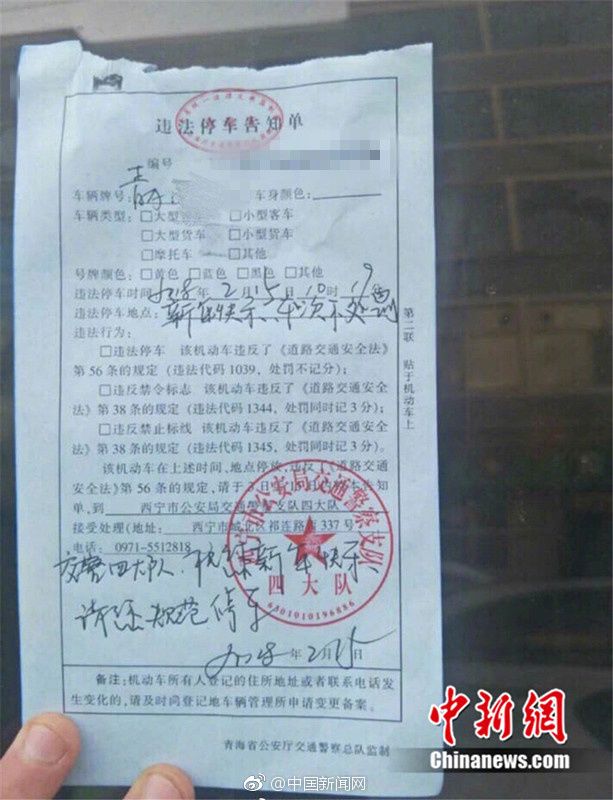 违法停车告知单
编号
车辆牌号: 青 车身颜色:
车辆类型: □大型客车 □小型客车
□大型货车 □小型货车
□摩托车 □其他
号牌颜色: □黄色 □蓝色 □黑色 □其他
违法停车时间 2018年2月15日10时19
违法停车地点: 新年快乐!本次不处罚
违法行为:
□违法停车 该机动车违反了《道路交通安全法》
第56条的规定(违法代码1039,处罚不记分);
□违反禁令标志 该机动车违反了《道路交通安全
法》第38条的规定(违法代码1344,处罚同时记3分);
□违反禁止标线 该机动车违反了《道路交通安全
法》第38条的规定(违法代码1345,处罚同时记3分)。
该机动车在上述时间、地点停放,违反了《道路交通
安全法》第56条的规定,请于3日至15日持本告知
单,到 西宁市公安局交通警察支队四大队
接受处理(地址: 西宁市城北区祁连路西337号
电话: 0971-5512818
交警四大队 祝您新年快乐
请您规范停车
2018年2月15日
备注:机动车所有人登记的住所地址或者联系电话发
生变化的,请及时向登记地车辆管理所申请变更备案。
青海省公安厅交通警察总队监制
第二联 贴于机动车上
西宁市公安局交通警察支队
四大队
6301010196886
中新网
Chinanews.com
@中国新闻网